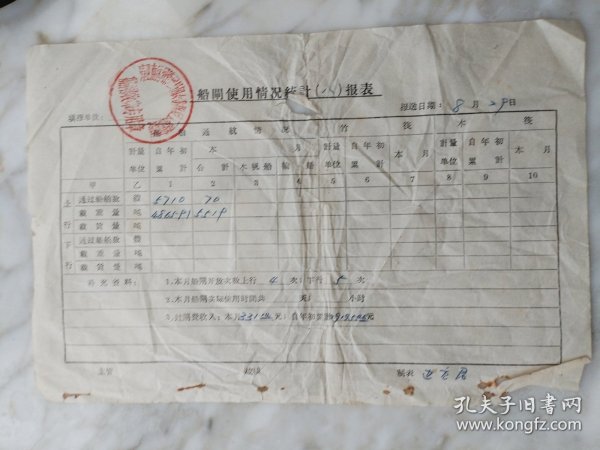 船閘使用情况統計(八)报表
填造单位:
报送日期: 8月29日
船舶通航情况 竹筏 木筏
計量单位 自年初累計 本月 計量单位 自年初累計 本月 計量单位 自年初累計 本月
合計 木帆船 輪船
甲 乙 1 2 3 4 5 6 7 8 9 10
上行 通过船舶数 艘 5710 70
載重量 吨 5519
載貨量 吨
下行 通过船舶数 艘
載重量 吨
載貨量 吨
补充資料: 1.本月船閘开放次数上行 4 次;下行 5 次
2.本月船閘实际使用时間共 天; 小时
3.过閘費收入:本月 元;自年初累計 元
主管 制表
孔夫子旧书网
www.kongfz.com